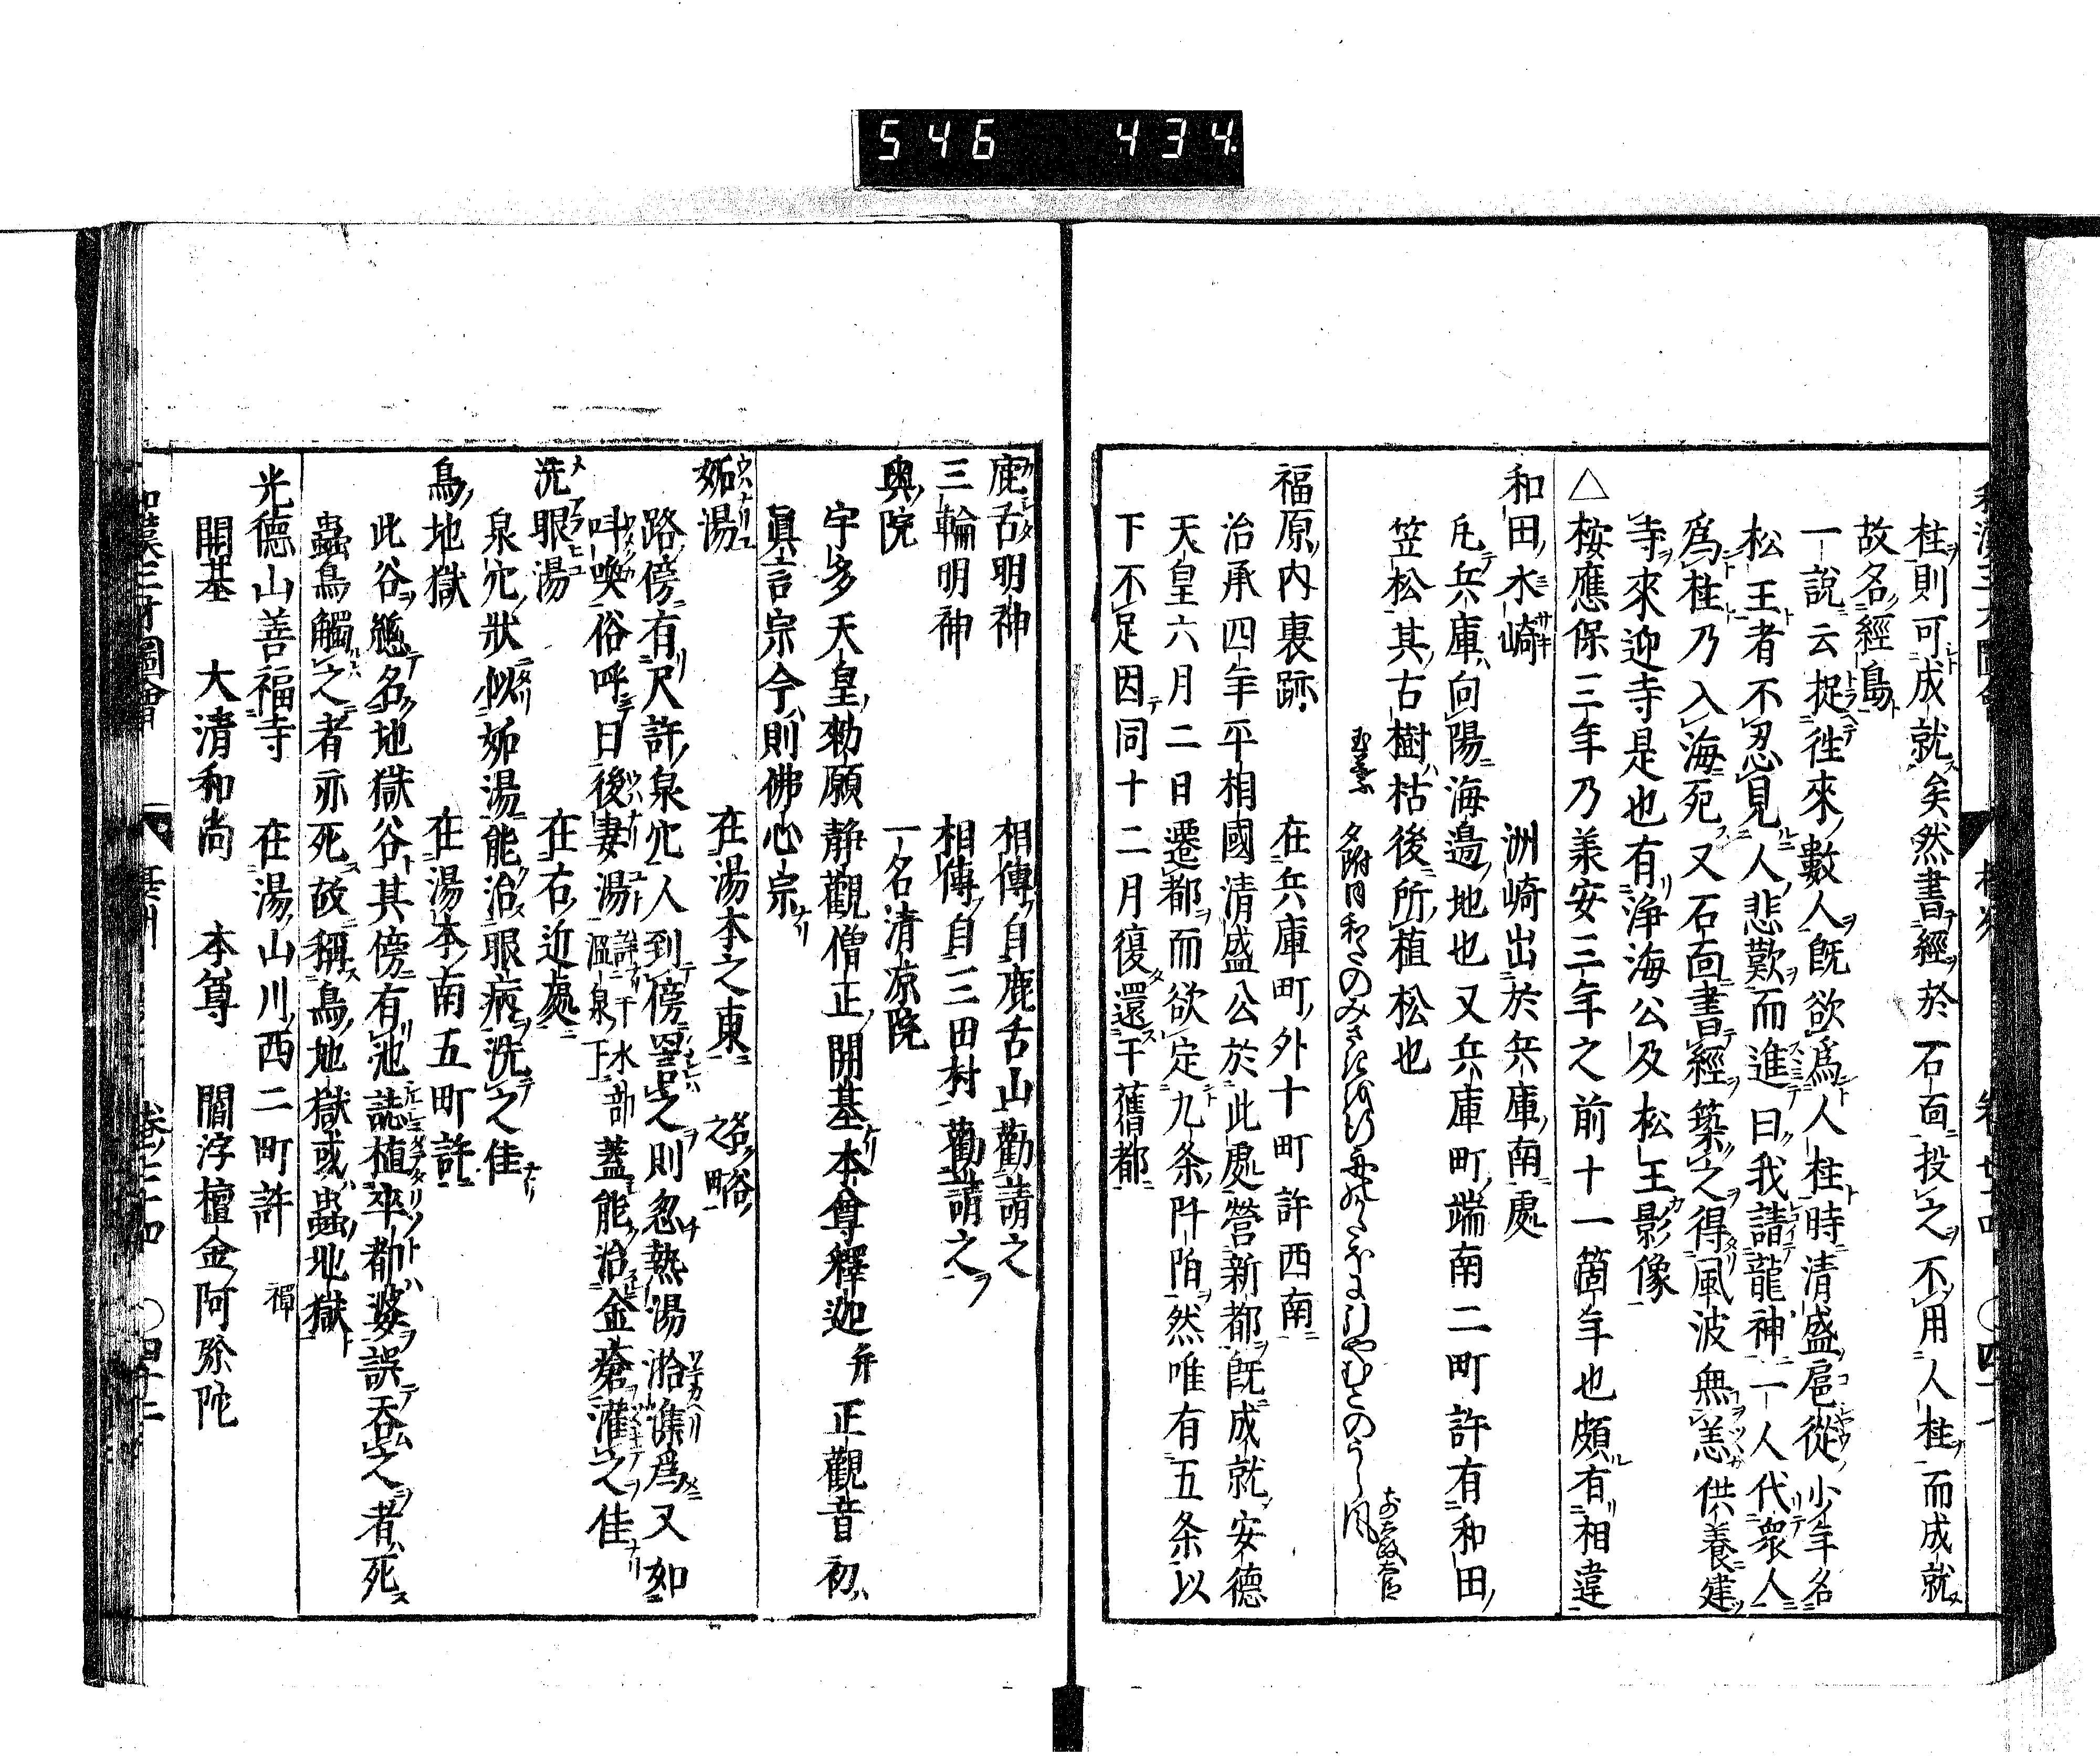 546 434
柱則可成就矣然書經於石面投之不用人柱而成就
故名經島
一說云捉徃來數人旣欲爲人柱時清盛扈從小年名
松王者不忍見人悲歎而進曰我請龍神一人代衆人
爲柱乃入海死又石面書經築之得風波無恙供養建
寺來迎寺是也有浄海公及松王影像
△桉應保三年乃兼安三年之前十一箇年也頗有相違
和田水崎 洲崎出於兵庫南處
凡兵庫向陽海邉地也又兵庫町端南二町許有和田
笠松其古樹枯後所植松也
福原内裏跡 在兵庫町外十町許西南
治承四年平相國清盛公於此處營新都旣成就安德
天皇六月二日遷都而欲定九条阡陌然唯有五条以
下不足因同十二月復還干舊都
鹿舌明神 相傳自鹿舌山勸請之
三輪明神 相傳自三田村勸請之
奧院 一名清凉院
宇多天皇勑願静觀僧正開基本尊釋迦并正觀音初
眞言宗今則佛心宗
妬湯 在湯本之東
路傍有尺許泉穴人到傍詈之則忽熱湯湁潗爲又如
叫喚俗呼曰後妻湯 溫泉下 蓋能治金瘡灌之佳
洗眼湯 在右近處
泉穴狀似妬湯能治眼病洗之佳
鳥地獄 在湯本南五町許
此谷總名地獄谷其傍有池誌植卒都婆誤呑之者死
蟲鳥觸之者亦死故稱鳥地獄或蟲地獄
光德山善福寺 在湯山川西二町許 禪
開基 大清和尚 本尊 閻浮檀金阿弥陀